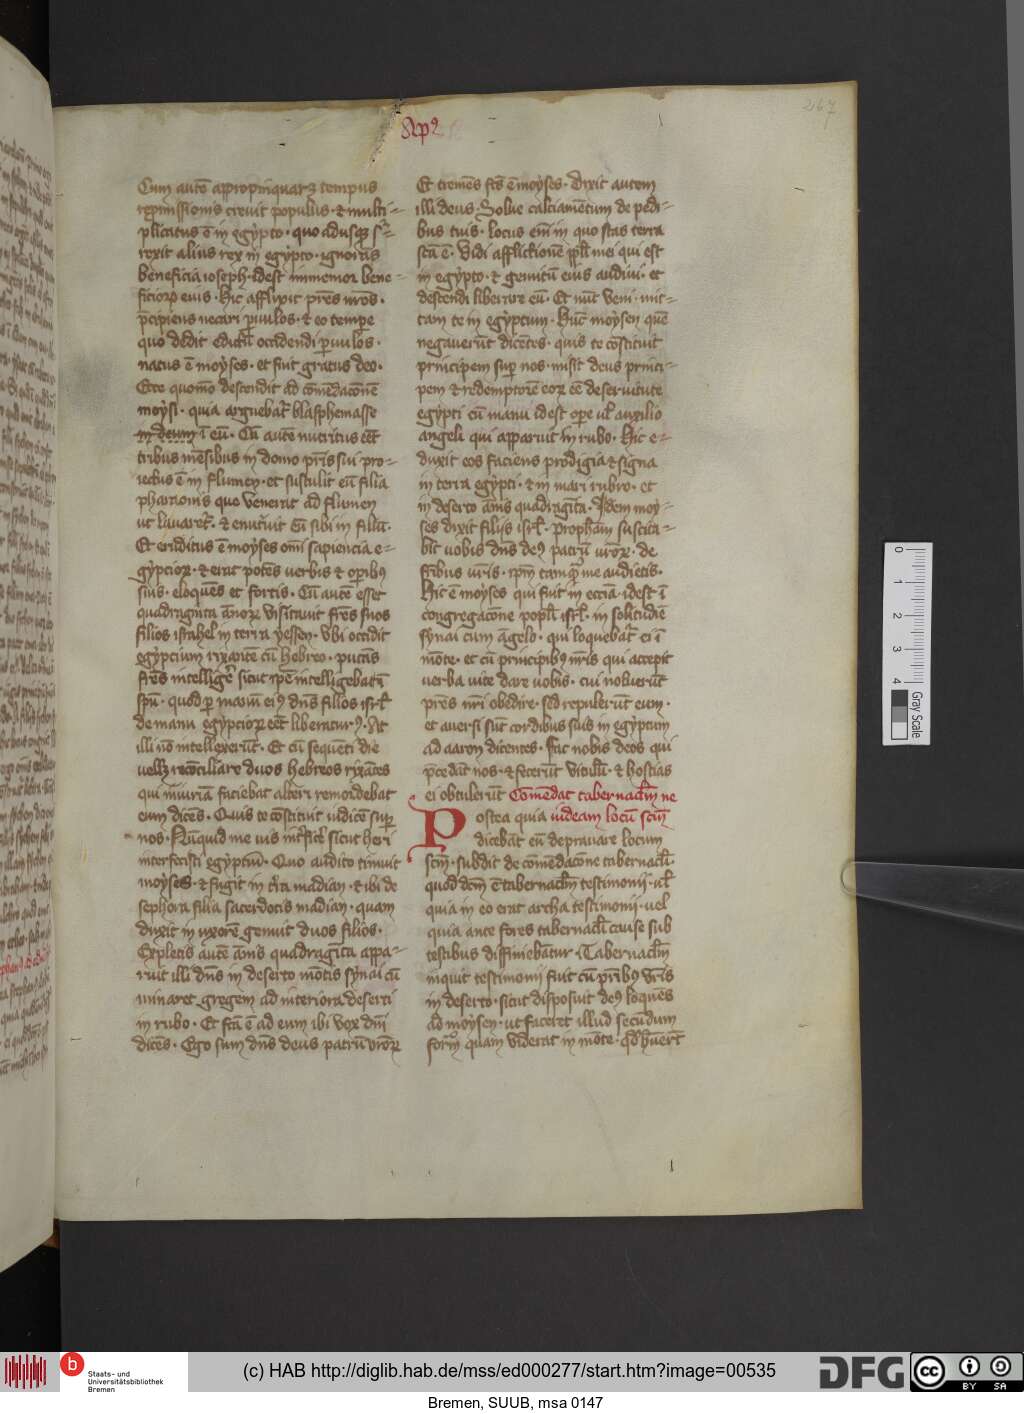 267
Apꝰ
Cum autē appropinquarꝫ tempus
repmissionis creuit populus · & multi=
plicatus ē in egypto · quo adusqꝫ sr̄
rexit alius rex in egypto · ignorās
beneficia ioseph · idest immemor bene=
ficioꝝ eius · hic afflixit pr̄es nr̄os ·
p̄cipiens necari ꝑuulos · & eo tempe
quo dedit edictū occidendi ꝑuulos ·
natus ē moyses · et fuit gratus deo ·
Ecce quom̄o descendit ad cōmēdacōnē
moysi · quia arguebat̄ blasphemasse
in deum ī eū · Cū autē nutritus eēt
tribus mēsibus in domo pr̄is sui pro=
iectus ē in flumen · et sustulit eū filia
pharaonis que venerat ad flumen
ut lauaret̄ · & enutriuit eū sibi in filiū ·
Et eruditus ē moyses om̄i sapiencia e=
gypcioꝝ · & erat potēs uerbis & oꝑibꝫ
suis · eloquēs et fortis · Cū autē esset
quadraginta ānoꝝ visitauit fr̄es suos
filios israhel in terra yessen · Vbi occidit
egypcium rixantē cū hebreo · putās
fr̄es intelligē sicut ip̄e intelligebat ī
spū · quod ꝑ manū eiꝰ dn̄s filios isr̄l
de manu egypcioꝝ eēt liberaturꝰ · At
illi nō intellexerūt · Et cū sequēti die
uellꝫ recōciliare duos hebreos rixātes
qui iniuriā faciebat alteri remordebat
eum dicēs · Quis te cōstituit iudicē suꝑ
nos · Nūquid me uis int̄ficē sicut heri
interfecisti egyptiū · Quo audito timuit
moyses · & fugit in t̄ra madian · & ibi de
sephora filia sacerdotis madian · quam
duxit in uxorē genuit duos filios ·
Expletis autē ānis quadragīta appa=
ruit illi dn̄s in deserto mōtis synai cū
minaret gregem ad interiora deserti
in rubo · Et fcā ē ad eum ibi vox dn̄i
dicēs · Ego sum dn̄s deus patrū vr̄oꝝ
Et tremēs fc̄s ē moyses · dixit autem
illi deus · Solue calciamētum de pedi=
bus tuis · locus em̄ in quo stas terra
scā ē · Vidi afflictionē pp̄l̄i mei qui est
in egypto · & gemitū eius audiui · et
descendi liberare eū · Et nūc veni · mit=
tam te in egyptum · Hūc moysen quē
negauerūt dicētes · quis te cōstituit
principem suꝑ nos · misit deus princi=
pem & redemptorē eoꝝ eē de seruitute
egypti cū manu idest oꝑe ul̄ auxilio
angeli qui apparuit in rubo · Hic e=
duxit eos faciens prodigia & signa
in terra egypti · & in mari rubro · et
in deserto ānis quadragīta · Idem moy=
ses dixit filijs isr̄l · Propham̄ suscita=
bit uobis dn̄s deꝰ patrū vr̄oꝝ · de
fr̄ibus vr̄is · ip̄m tamqꝫ me audietis ·
Hic ē moyses qui fuit in ecc̄ia · idest ī
congregacōne popl̄i isr̄l · in solitudīe
synai cum āgelo · qui loquebat̄ ei ī
mōte · et cū principibꝫ nr̄is qui accepit
verba uite dare uobis · cui noluerūt
pr̄es nr̄i obedire · sed repulerūt eum ·
et auersi sūt cordibus suis in egyptum
ad aaron dicentes · Fac nobis deos qui
p̄cedāt nos · & fecerūt vitulū · & hostias
ei obtulerūt Cōmēdat tabernacl̄m ne
Postea quia iudeam locū scm̄
dicebāt eū deprauare locum
scm̄ · subdit de cōmēdacōne tabernacl̄i ·
quod dcm̄ ē tabernacl̄m testimonii · ul̄
quia in eo erat archa testimonii · uel
quia ante fores tabernacl̄i cause sub
testibus diffiniebātur · Tabernacl̄m
inquit testimonii fuit cū pr̄ibꝫ vr̄is
in deserto · sicut disposuit deꝰ loquēs
ad moysen · ut faceret illud secūdum
formā quam viderat in mōte · qd̄ h̄uerūt
0 1 2 3 4
Gray Scale
b Staats- und
Universitätsbibliothek
Bremen
(c) HAB http://diglib.hab.de/mss/ed000277/start.htm?image=00535
DFG
cc BY SA
Bremen, SUUB, msa 0147